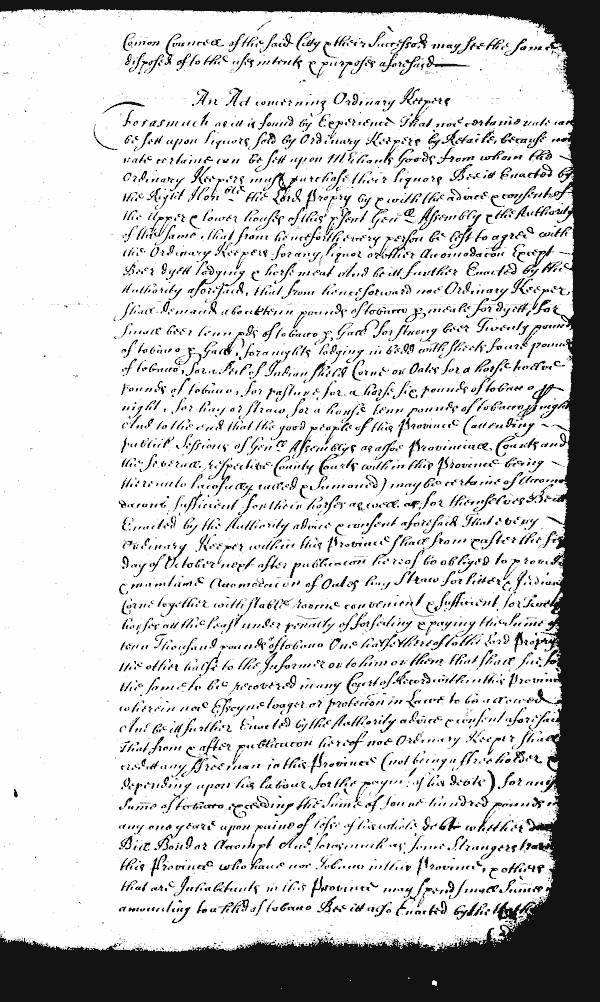 Comon Councell of the said Citty & their Successors may see the same
disposed of to the uses intents & purposes aforesaid
An Act concerning Ordinary Keepers
Forasmuch as it is found by Experience That noe certaine rate can
be sett upon Liquors sold by Ordinary Keepers by Retaile, because noe
rate certaine can be sett upon M'chants Goods from whom the
Ordinary Keepers must purchase their liquors Bee it Enacted by
the Right Hon ble the Lord Propry by & with the advice & consent of
the upper & lower houses of this p'sent Gen ll Assembly & the Authority
of the same, That from henceforth every person be left to agree with
the Ordinary Keepers for any liquor or other Acomodacon Except
Beer dyett lodging & horse meat And be itt further Enacted by the
Authority aforesaid, that from henceforward noe Ordinary Keeper
shall demand above tenn pounds of tobacco p meale for dyett, for
small beer tenn pds of tobacco p Gall for strong beer Twenty pound
of tobacco p Gall, for a nights lodging in bedd with sheets foure pounds
of tobacco, for a Peck of Indian Corne or Oates for a horse twelve
pounds of tobacco, for pasture for a horse six pounds of tobacco p
night, for hay or straw for a horse tenn pounds of tobacco p night
And to the end that the good people of this Province (attending
publick Sessions of Gen ll Assemblys as alsoe Provinciall Courts and
the severall respective County Courts within this Province being
thereunto lawfully called & Sumoned) may be certaine of Accomo
dacons sufficient for their horses as well as for themselves Be itt
Enacted by the Authority advice & consent aforesaid That every
Ordinary Keeper within this Province shall from & after the
day of October next after publicacon hereof be obliged to provide
& maintaine Acomodacon of Oates hay Straw for litter & Indian
Corne together with stable roome convenient & sufficient for
horses att the least under penalty of forfeiting & paying the Sume of
tenn Thousand pounds of tobacco One halfe thereof to the Lord Propry
the other halfe to the Informer or to him or them that shall sue for
the same to be recovered in any Court of Record within this Province
wherein noe Essoyne wager or protection in Lawe to be allowed
And be itt further Enacted by the Authority advice & consent aforesaid
That from & after publicacon hereof noe Ordinary Keeper shall
creditt any Freeman in this Province (not being a freeholder &
depending upon his labour for the paym t of his debts) for any
Sume of tobacco exceeding the Sume of foure hundred pounds in
any one yeare upon paine of losse of his whole debt whether
Bill Bond or Accompt And forasmuch as some Strangers
this Province who have noe Tobacco in this Province, & others
that are Inhabitants in this Province may spend small Sumes
amounting to a hhd of tobacco Bee itt also Enacted by the